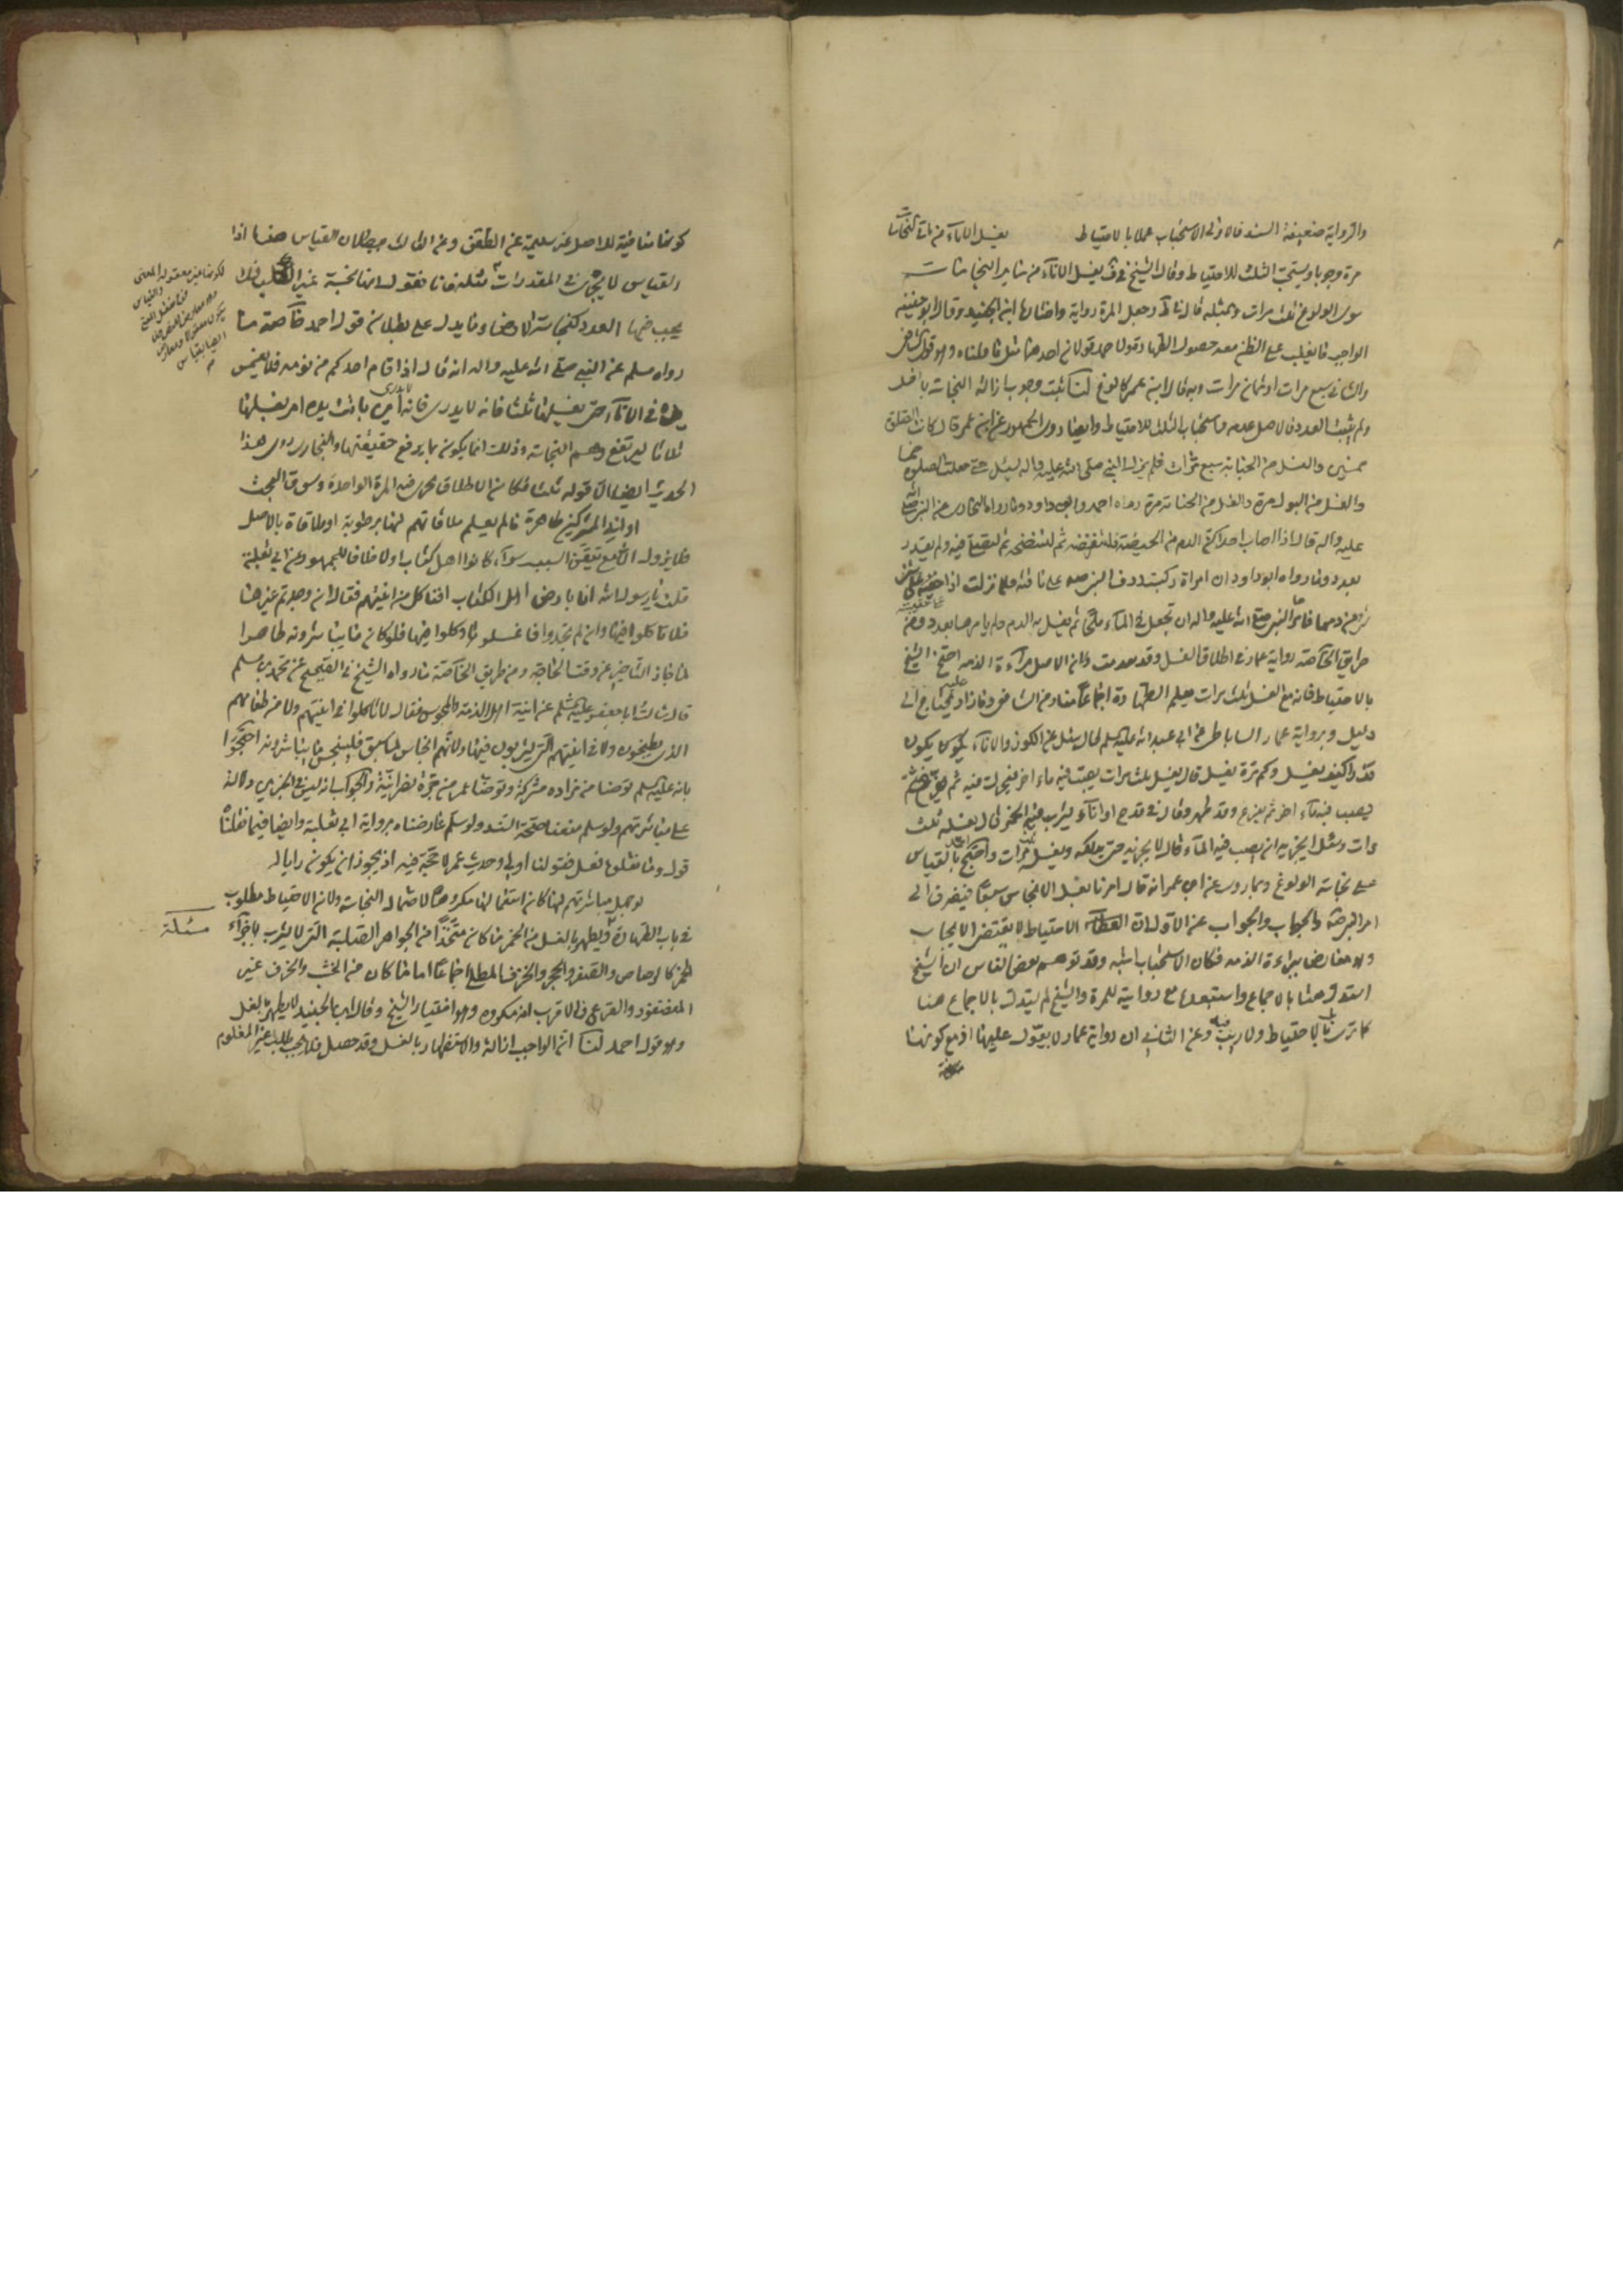 والرواية ضعيفة السند فالاولى الاستحباب عملا بالاحتياط يغسل الاناء من باقي النجاسات
مرة وجوبا ويستحب الثلث للاحتياط وقال الشيخ في ف يغسل الاناء من سائر النجاسات
سوى الولوغ ثلث مرات وبمثله قال في ط وجعل المرة رواية واختارها ابن الجنيد وقال ابو حنيفة
الواجب ما يغلب على الظن معه حصول الطهارة ولاحمد قولان احدهما مثل ما قلناه وهو قول الشافعي
والثاني سبع مرات او ثمان مرات وبه قال ابن عمر كالولوغ لنا ثبت وجوب ازالة النجاسة باقل
ولم يثبت العدد فالاصل عدمه واستحباب الثلث للاحتياط وايضا روى الجمهور عن ابن عمر قال كانت الصلوة
خمسين والغسل من الجنابة سبع مرات فلم يزل النبي صلى الله عليه واله يسئل حتى جعلت الصلوة خمسا
والغسل من البول مرة والغسل من الجنابة مرة رواه احمد وابو داود وما رواه البخاري من النبي صلى الله
عليه واله قال اذا اصاب احداكن الدم من الحيضة فلتقرضه ثم لتنضحه ثم لتصل فيه ولم يقدر
بعدد وما رواه ابو داود ان امراة ركبت ردف النبي صه على ناقته فلما نزلت اذا حقيبته
من دمها فامرها النبي صلى الله عليه واله ان تجعل في الماء ملحا ثم تغسل به الدم ولم يامرها بعدد ومن
طريق الخاصة رواية عمار في اطلاق الغسل وقد تقدمت ولان الاصل براءة الذمة احتج الشيخ
بالاحتياط فانه مع الغسل ثلث مرات يعلم الطهارة اجماعا وما زاد عليه يحتاج الى
دليل وبرواية عمار الساباطي عن ابي عبد الله عليه السلم قال سئل عن الكوز والاناء يكون
قذرا كيف يغسل وكم مرة يغسل قال يغسل ثلث مرات يصب فيه ماء اخر فيحرك فيه ثم يفرغ ثم
يصب فيه ماء اخر ثم يفرغ وقد طهر وقال في قدح او اناء يشرب فيه الخمر قال يغسله ثلث
مرات وسئل ايجزيه ان يصب فيه الماء قال لا يجزيه حتى يدلكه ويغسله ثلث مرات واحتج احمد بالقياس
على نجاسة الولوغ وبما روى عن ابن عمر انه قال امرنا بغسل الانجاس سبعا فينصرف الى
امر النبي صه والجواب عن الاول ان الاحتياط لا يقتضي الايجاب
وهو معارض ببراءة الذمة فكان الاستحباب اشبه وقد توهم بعض الناس ان الشيخ
استدل هنا بالاجماع واستبعده مع روايته للمرة والشيخ لم يستدل بالاجماع هنا
كما ترى بل بالاحتياط ولا ريب فيه وعن الثاني ان رواية عمار لا يعول عليها اذ مع كونها
كونها منافية للاصل غير سليمة عن الطعن وعن الثالث ببطلان القياس هذا اذا
والقياس لا يجري في المقدرات سلمنا فانا نقول انها نجسة غير الكلب فلا
يجب فيها العدد كنجاسة الارض وما يدل على بطلان قول احمد خاصة ما
رواه مسلم عن النبي صلى الله عليه واله انه قال اذا قام احدكم من نومه فلا يغمس
يده في الاناء حتى يغسلها ثلثا فانه لا يدري اين باتت يده امر بغسلها
ثلاثا ليرتفع وهم النجاسة وذلك انما يكون بما يرفع حقيقتها والبخاري روى هذا
الحديث ايضا الا قوله ثلثا
اواني المشركين طاهرة ما لم يعلم ملاقاتهم لها برطوبة او ملاقاة بالاصل
فلا يزول الا مع تيقن السبب سواء كانوا اهل كتاب اولا خلافا للجمهور وعن ابي ثعلبة
قلت يا رسول الله انا بارض اهل الكتاب افناكل من انيتهم فقال ان وجدتم غيرها
فلا تاكلوا فيها وان لم تجدوا فاغسلوها وكلوا فيها فلو كان ما يباشرونه طاهرا
لما جاز التاخير عن وقت الحاجة ومن طريق الخاصة ما رواه الشيخ في الصحيح عن محمد بن مسلم
قال سالت ابا جعفر عليه السلم عن انية اهل الذمة والمجوس فقال لا تاكلوا في انيتهم ولا من طعامهم
الذي يطبخون ولا في انيتهم التي يشربون فيها ولانهم انجاس لما سبق فلينجس ما يباشرونه احتجوا
بانه عليه السلم توضا من مزادة مشركة وتوضا عمر من جرة نصرانية والجواب انه ليس في الخبرين دلالة
على مباشرتهم ولو سلم منعنا صحة السند ولو سلم عارضناه برواية ابي ثعلبة وايضا فيما نقلناه
قول وما نقلوه فعل فقولنا اولى وحديث عمر لا حجة فيه اذ يجوز ان يكون رايا له
لو جهل مباشرتهم لها كان استعمالها مكروها لاحتمال النجاسة ولان الاحتياط مطلوب
في باب الطهارة ويطهر بالغسل من الخمر ما كان متخذا من الجواهر الصلبة التي لا يشرب باجزاء
الخمر كالرصاص والصفر والحجر والخزف المطلي اجماعا اما ما كان من الخشب والخزف غير
المغضور والقرع فالاقرب انه مكروه وهو اختيار الشيخ وقال ابن الجنيد لا يطهر بالغسل
وهو قول احمد لنا ان الواجب ازالة والاستظهار بالغسل وقد حصل فلا يجب طلب غير المعلوم
لكونها غير معقولة المعنى
مسئلة